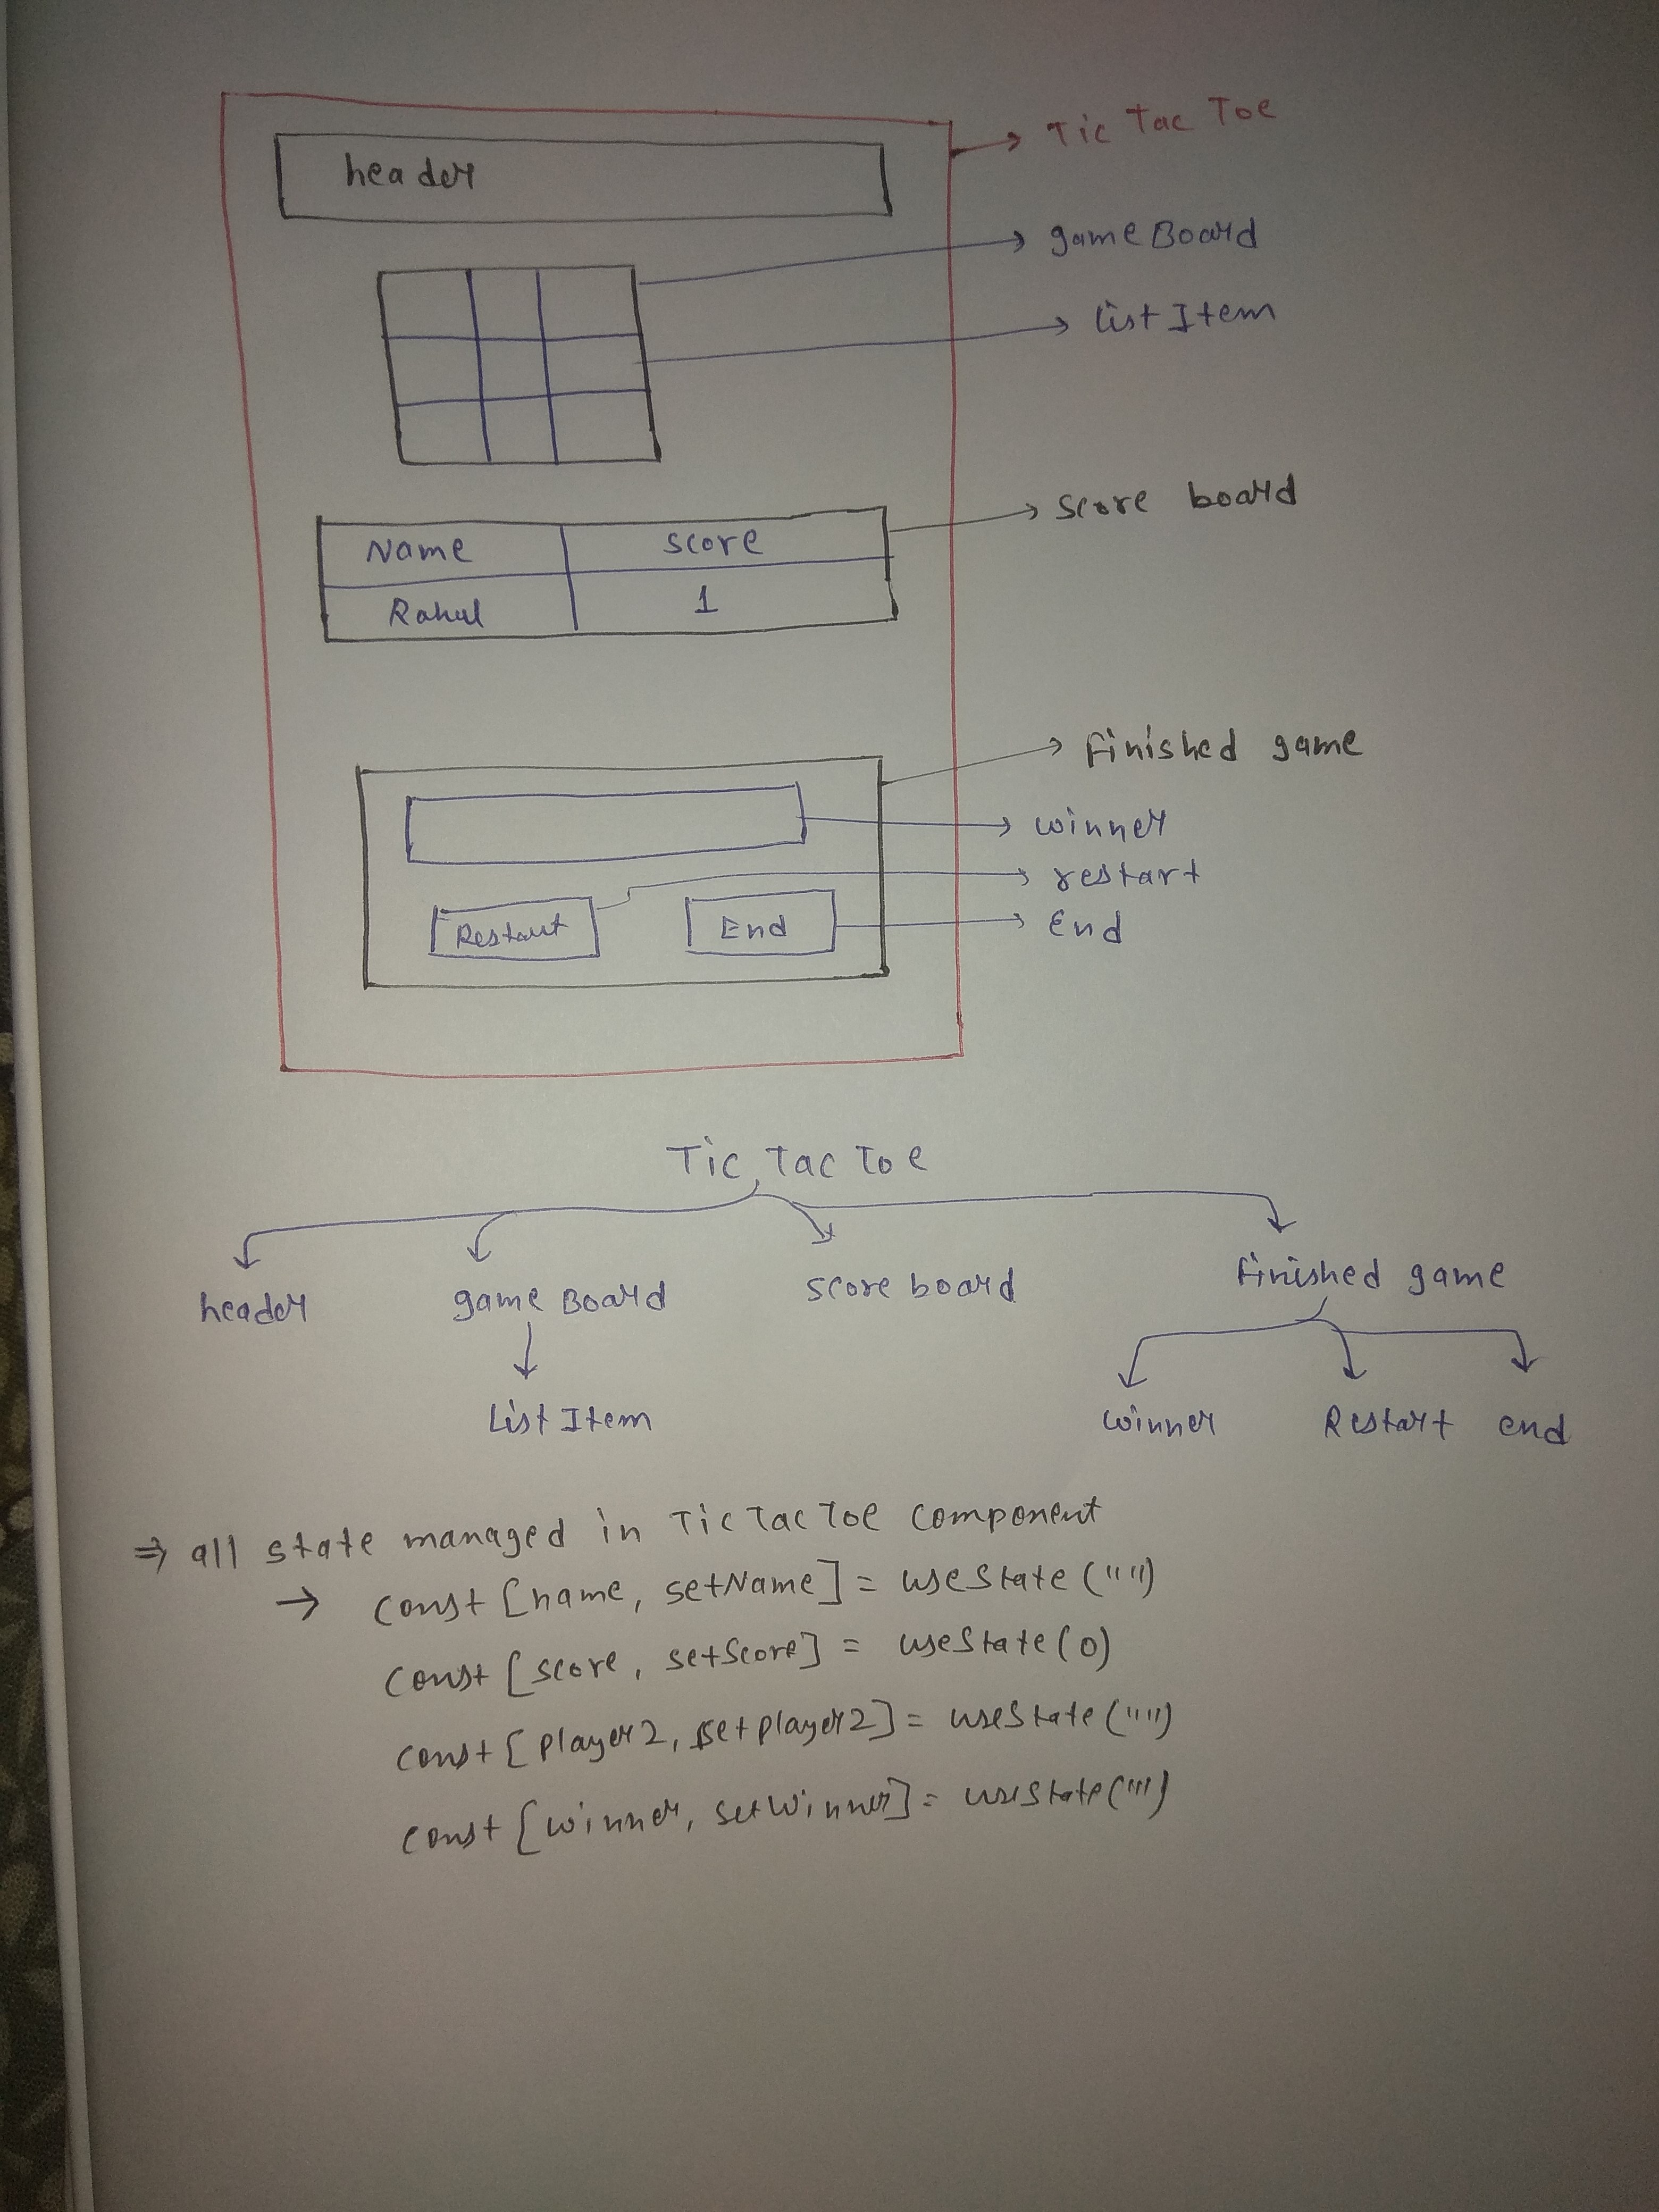 Tic Tac Toe
header
gameBoard
List Item
Score board
Name score
Rahul 1
Finished game
winner
restart
Restart End
End
Tic Tac Toe
header game Board score board finished game
List Item winner Restart end
⇒ all state managed in TicTacToe component
→ const [name, setName] = useState ("")
const [score, setScore] = useState (0)
const [player2, setplayer2] = useState ("")
const [winner, setWinner] = useState ("")